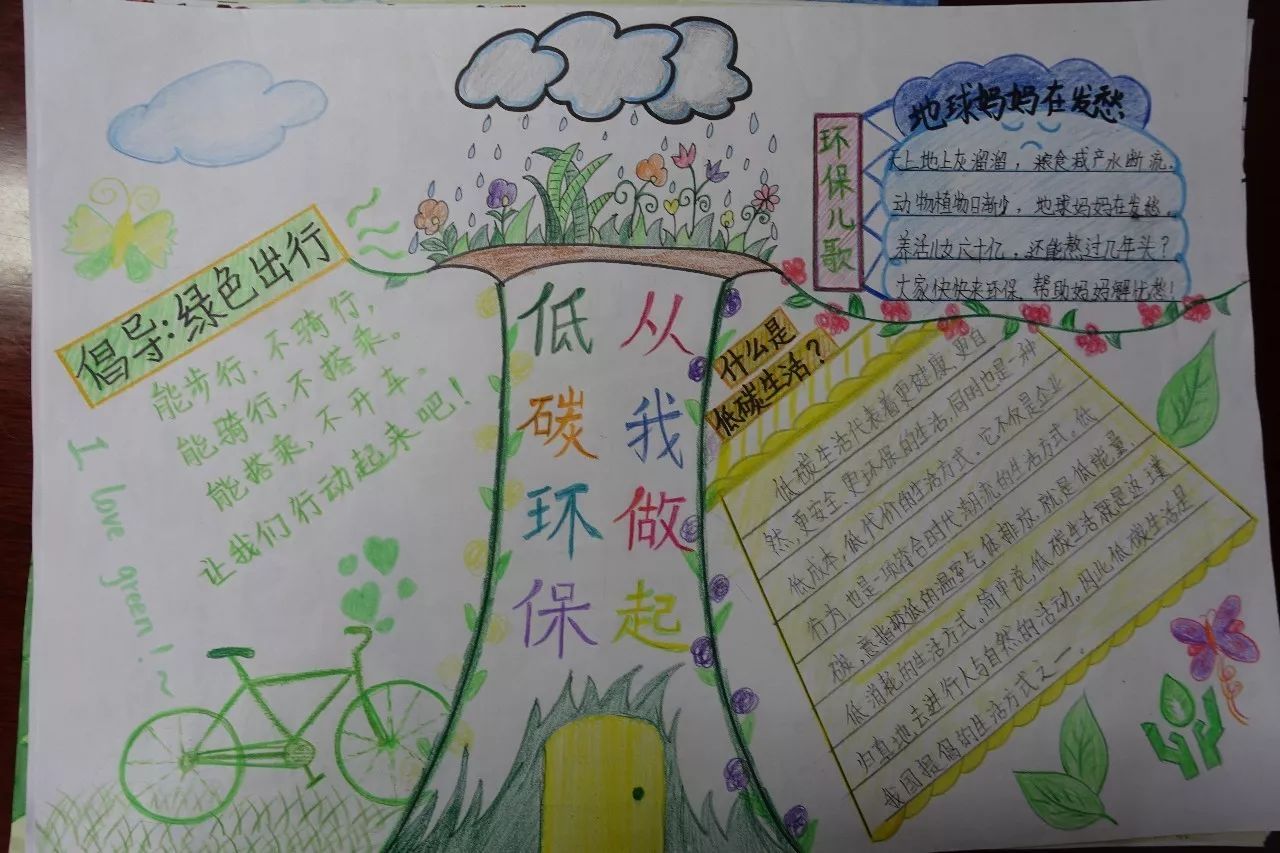 倡导:绿色出行
能步行,不骑行,
能骑行,不搭乘。
能搭乘,不开车。
让我们行动起来吧!
I love green!~
低碳环保
从我做起
环保儿歌
地球妈妈在发愁
天上地上灰溜溜,粮食减产水断流。
动物植物日渐少,地球妈妈在发愁。
养活儿女六十亿,还能熬过几年头?
大家快快来环保,帮助妈妈解忧愁!
什么是
低碳生活?
低碳生活代表着更健康、更自
然、更安全、更环保的生活,同时也是一种
低成本,低代价的生活方式。它不仅是企业
行为,也是一项符合时代潮流的生活方式。低
碳,意指较低的温室气体排放,就是低能量、
低消耗的生活方式。简单说,低碳生活就是返璞
归真地去进行人与自然的活动,因此低碳生活是
我国提倡的生活方式之一。